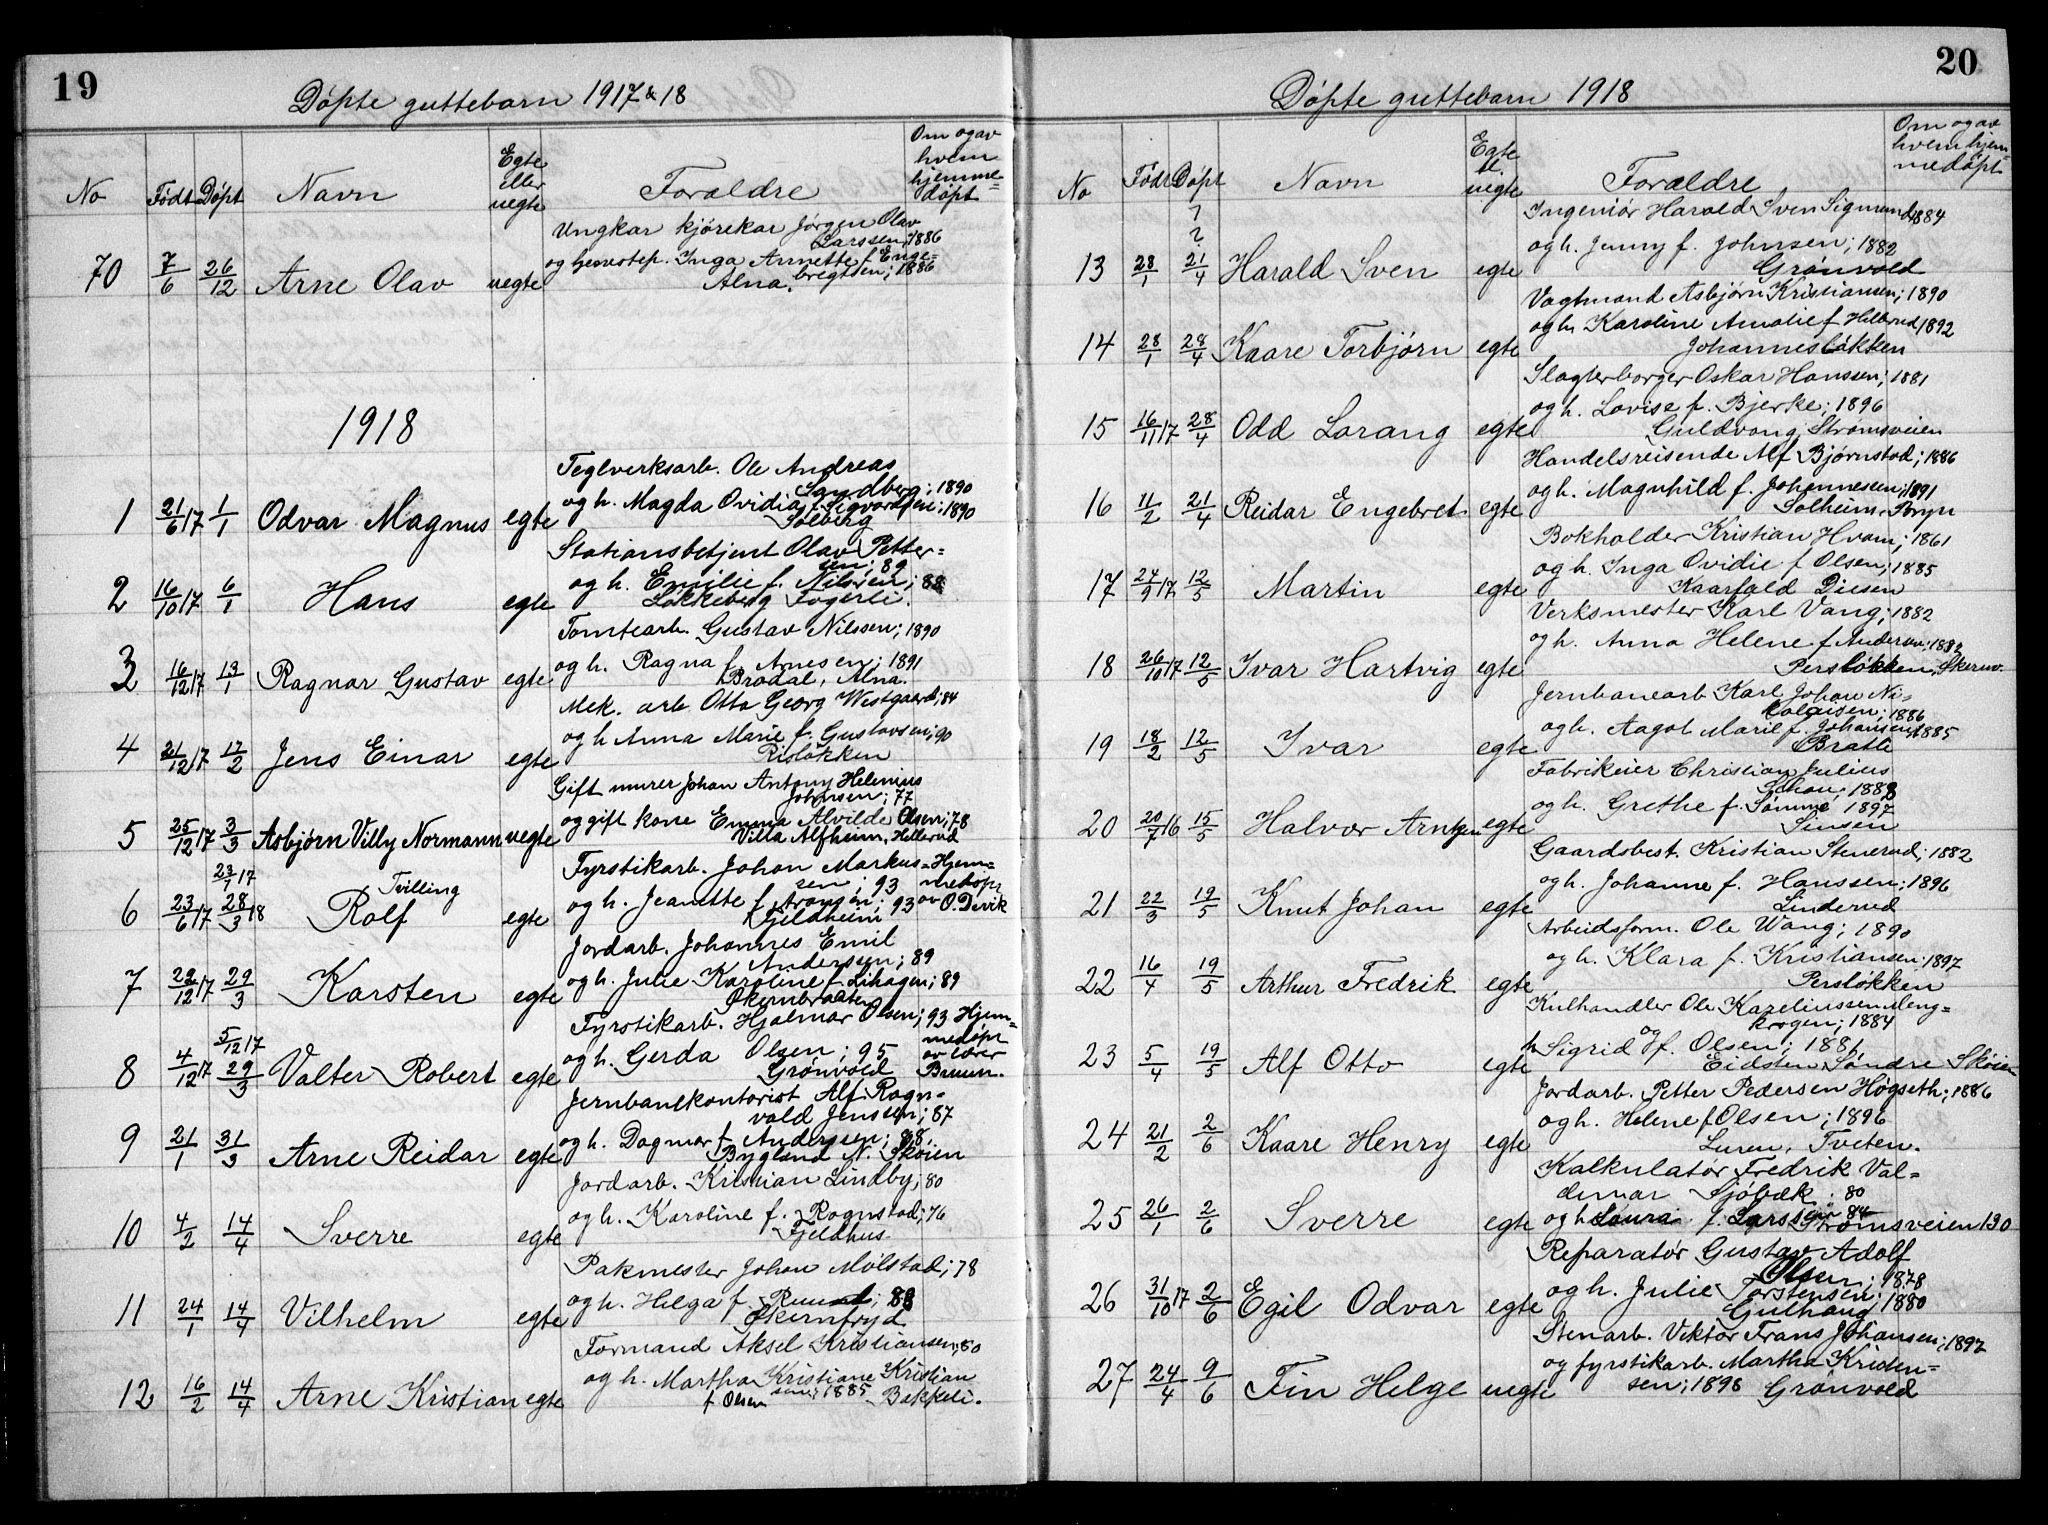 19
Døpte guttebarn 1917 & 18
No Født Døpt Navn Egte eller uegte Foraldre Om og av hvem hjemme= døpt
Ungkar kjørekar Jørgen Olav
Larssen; 1886
og Inga Annette f. Enge=
bregtsen; 1886
70 7/6 26/12 Arne Olav uegte Alna.
1918
Teglverksarb. Ole Andreas
Sandberg; 1890
og h. Magda Ovidia f. Sigvardsen; 1890
1 21/6 17 1/1 Odvar Magnus egte Solberg
Stationsbetjent Olav Petter=
sen; 89
og h. Emilie f. Nilsen; 88
2 16/10 17 6/1 Hans egte Løkkeberg
Tomtearb. Gustav Nilssen; 1890
og h. Ragna f. Arnesen; 1891
3 16/12 17 13/1 Ragnar Gustav egte Brodal, Alna.
Mek. arb Otto Georg Westgaard; 84
og h Anna Marie f. Gustavsen; 90
4 21/12 17 17/2 Jens Einar egte Risløkken
Gift murer Johan Antony Helenius
Johnsen; 77
og gift kone Emma Alvilde Olsen; 78
5 25/12 17 3/3 Asbjørn Villy Normann uegte Villa Alfheim, Hellerud
Fyrstikarb. Johan Markus=
sen; 93
og h. Jeanette f. Aronsen; 93 Hjem= medøpt av O. Devik
6 23/6 17 23/7 17 28/3 18 Tvilling Rolf egte Fjeldheim
Jordarb. Johannes Emil
Anderssen; 89
og h. Julie Karoline f. Lihagen; 89
7 22/12 17 29/3 Karsten egte Økernbraaten
Fyrstikarb. Hjalmar Olsen; 93
og h. Gerda Olsen; 95 Hjem= medøpt av lærer Bruun.
8 4/12 17 5/12 17 29/3 Valter Robert egte Grønvold
Jernbanekontorist Alf Ragn=
vald Jenssen; 87
og h. Dagmar f. Anderssen; 88.
9 21/1 31/3 Arne Reidar egte Bygland N. Skøien
Jordarb. Kristian Lindby; 80
og h. Karoline f. Rognstad; 76
10 4/2 14/4 Sverre egte Fjeldhus
Pakmester Johan Mølstad; 78
og h. Helga f. Ruud; 88
11 24/1 14/4 Vilhelm egte Økernfryd
Formand Aksel Kristiansen; 80
og h. Martha Kristiane Kristian
sen; 1885
12 16/2 14/4 Arne Kristian egte f Olsen Bakkeli.
20
Døpte guttebarn 1918
No Født Døpt Navn Egte el. uegte Forældre Om og av hvem hjem= medøpt
Ingeniør Harald Sven Sigmund; 1884
og h. Jenny f. Johnsen; 1882
13 28/1 ? ? 21/4 Harald Sven egte Grønvold
Vagtmand Asbjørn Kristiansen; 1890
og h. Karoline Amalie f Hellerud 1892
14 28/1 28/4 Kaare Torbjørn egte Johannesløkken
Slagterborger Oskar Hanssen; 1881
og h. Lovise f. Bjerke; 1896
15 16/11 17 28/4 Odd Lorang egte Guldvang, Strømsveien
Handelsreisende Alf Bjørnstad; 1886
og h. Magnhild f. Johannesen; 1891
16 11/2 21/4 Reidar Engebret egte Solheim, Bryn
Bokholder Kristian Hvam; 1861
og h. Inga Ovidie f Olsen; 1885
17 24/9 17 12/5 Martin egte Kaarfald Disen
Verksmester Karl Vang; 1882
og h. Anna Helene f Andersen; 1882
18 26/10 17 12/5 Ivar Hartvig egte Persløkken, Økernv.
Jernbanearb Karl Johan Ni=
kolaisen; 1886
og h. Aagot Marie f. Johansen; 1885
19 18/2 12/5 Ivar egte Bratli
Fabrikeier Christian Julius
Schou; 1888
og h. Grethe f. Sømme 1897
20 20/7 16 15/5 Halvor Arntzen egte Sinsen
Gaardsbest. Kristian Stenerud; 1882
og h. Johanne f. Hanssen; 1896
21 22/3 19/5 Knut Johan egte Linderud
Arbeidsform. Ole Wang; 1890
og h. Klara f. Kristiansen; 1897
22 16/4 19/5 Arthur Fredrik egte Persløkken
Kulhandler Ole Kazeliussen Leng=
krogen; 1884
og h Sigrid f. Olsen; 1881
23 5/4 19/5 Alf Otto egte Eidsten, Søndre Skøien
Jordarb. Petter Pedersen Høgseth; 1886
og h. Helene f Olsen; 1896
24 21/2 2/6 Kaare Henry egte Luren, Tveten.
Kalkulatør Fredrik Val=
demar Sjøbæk. 80
25 26/1 2/6 Sverre egte og h Laura f. Larssen 84 Strømsveien 130
Reparatør Gustav Adolf
Olsen; 1878
og h. Julie Torstensen; 1880
26 31/10 17 2/6 Egil Odvar egte Gulhaug
Stenarb. Viktor Frans Johansen; 1897
og fyrstikarb. Martha Kristen=
27 24/4 9/6 Fin Helge uegte sen; 1898 Grønvold